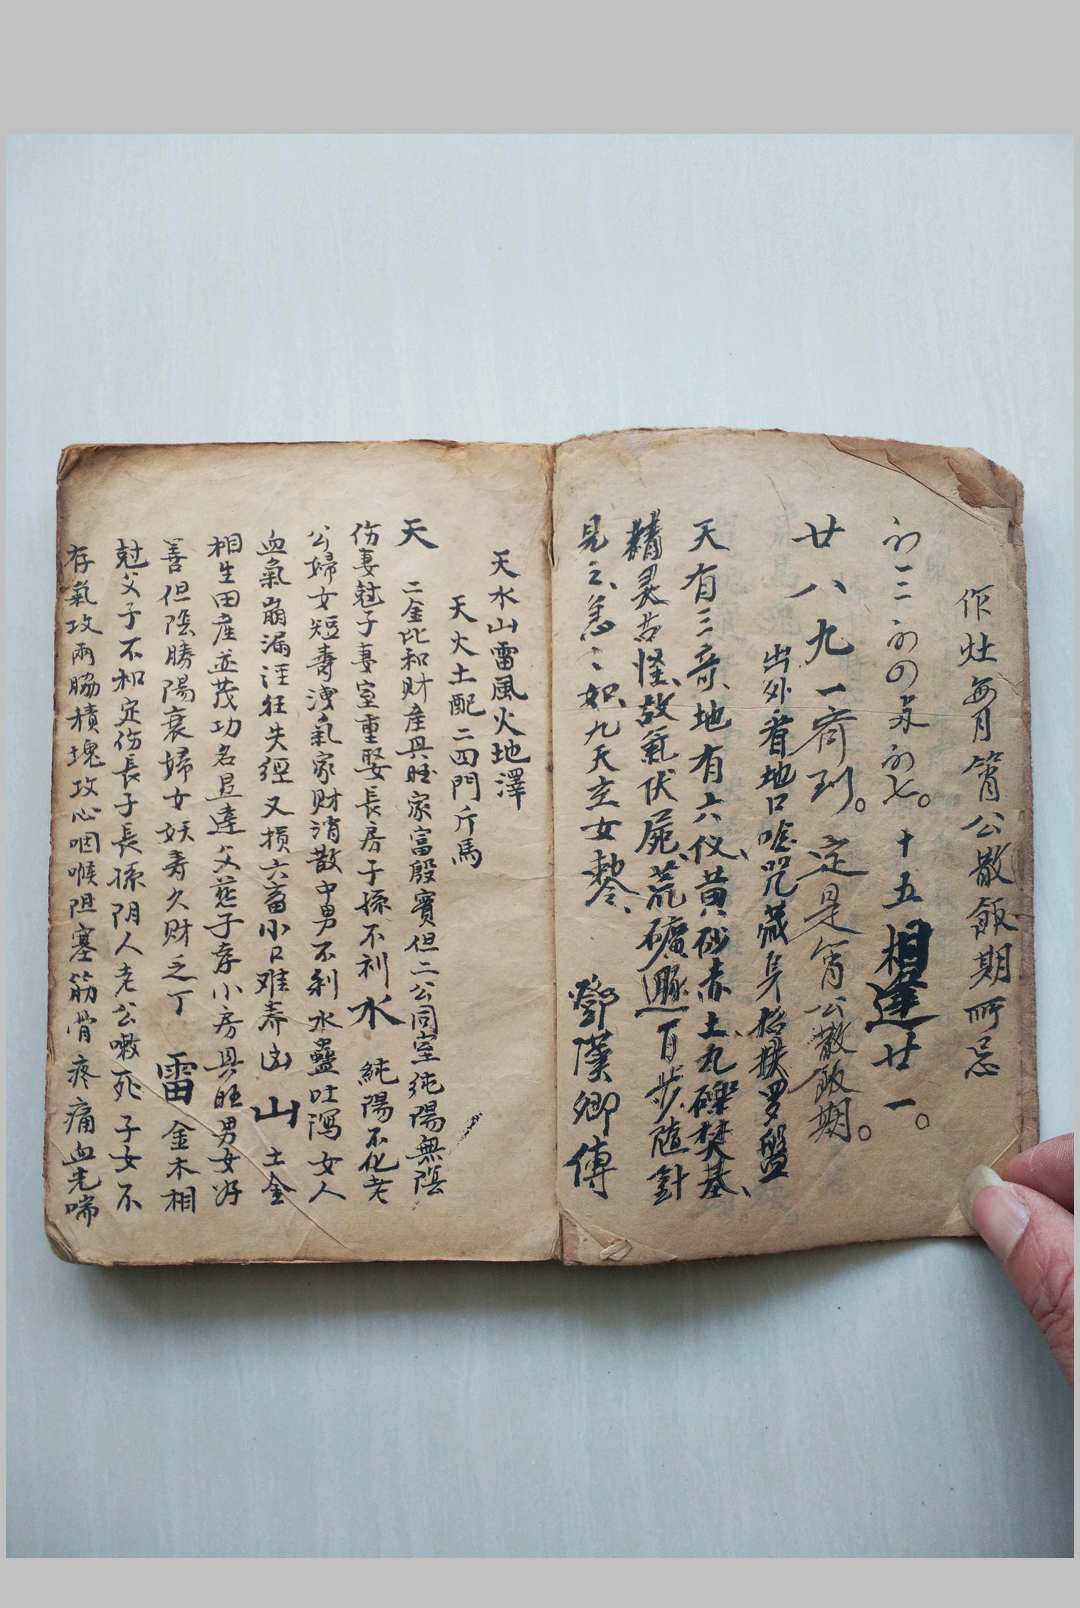 作灶每月筲公散飯期所忌
初三初四並初七。十五相逢廿一。
廿八九一齊到。定是筲公散飯期。
出外看地口唸咒藏身格扶罗盤
天有三奇、地有六仪、黄砂赤土、瓦礫焚基、
精灵古怪、故氣伏屍、荒礦 百步、随針
見之、急之如九天玄女
鄧漢卿傳
天水山雷風火地澤
天火土配二四門斤馬
天 二金比和财產興旺家富殷實但二公同室纯陽無陰
伤妻尅子妻室重娶長房子孫不利 水 純陽不化老
公婦女短壽洩氣家财消散中男不利水蠱吐瀉女人
血氣崩漏 狂失經又損六畜小口难养凶 山 土金
相生田產並茂功名显達父慈子孝小房興旺男女好
善但陰勝陽衰婦女妖壽欠财乏丁 雷 金木相
尅父子不和定伤長子長孫阴人老公嗽死子女不
存氣攻兩脇積塊攻心咽喉阻塞筋骨疼痛血光喘